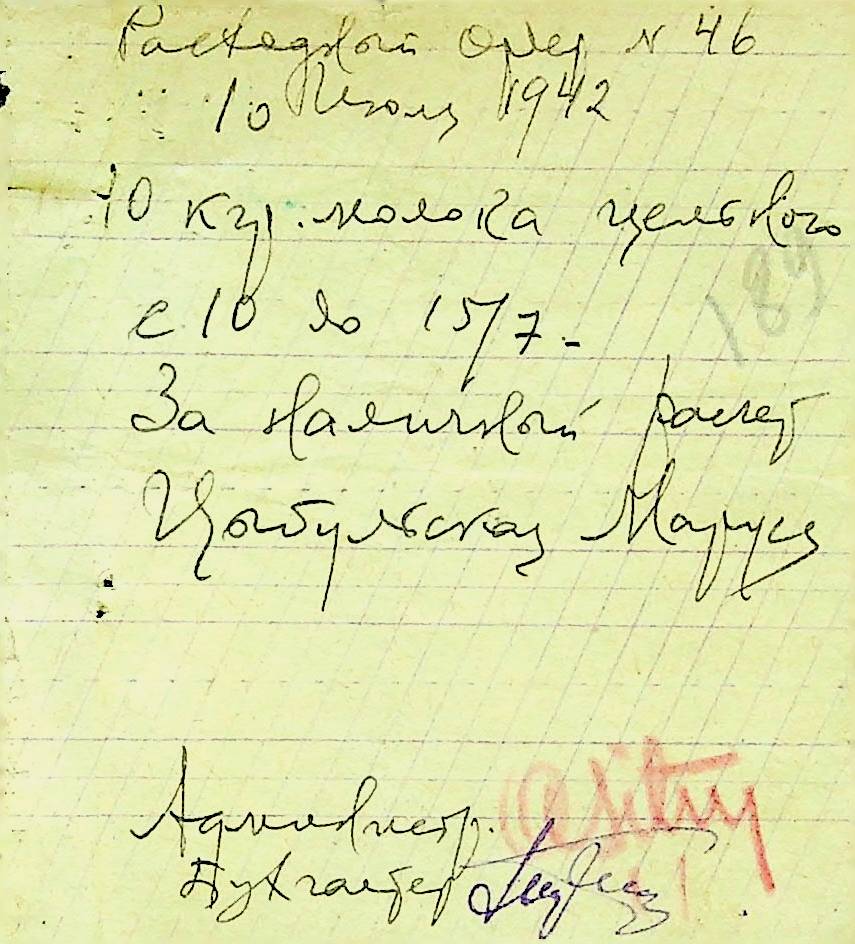 Расходный Ордер № 46
10 Июля 1942
10 кгр. молока цельного
с 10 до 15/7 -
189
За наличный расчет
Цыбульская Маруся
Администр.
Бухгалтер